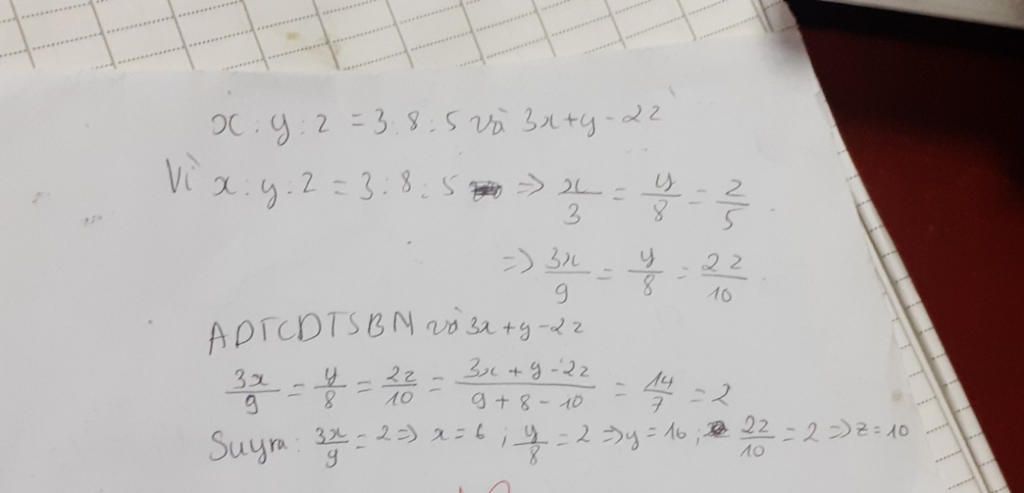 x : y : z = 3 : 8 : 5 và 3x + y - 2z
Vì x : y : z = 3 : 8 : 5 => x/3 = y/8 = z/5.
=> 3x/9 = y/8 = 2z/10.
ADTCDTSBN và 3x + y - 2z
3x/9 = y/8 = 2z/10 = (3x + y - 2z)/(9 + 8 - 10) = 14/7 = 2
Suy ra: 3x/9 = 2 => x = 6 ; y/8 = 2 => y = 16 ; 2z/10 = 2 => z = 10